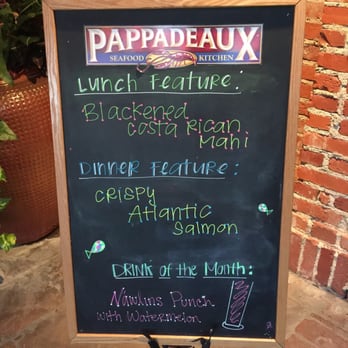 PAPPADEAUX
SEAFOOD KITCHEN
Lunch Feature:
Blackened
Costa Rican
Mahi
Dinner Feature:
Crispy
Atlantic
Salmon
Drink of the Month:
Nawlins Punch
with Watermelon